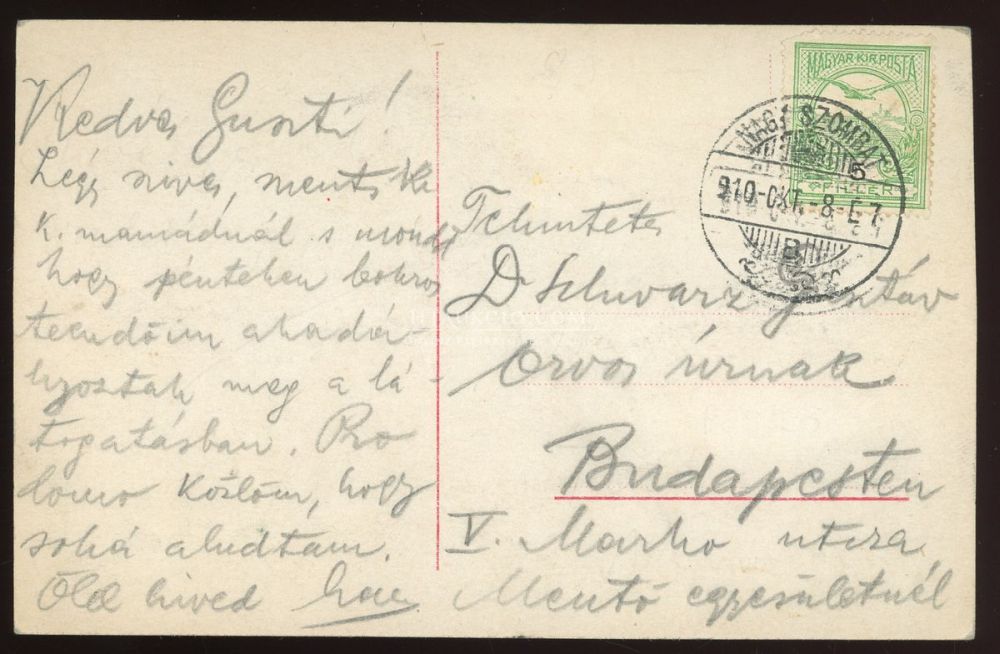 Kedves Guszti!
Légy szives, ments ki
k. mamádnál s mondd
hogy pénteken bokros
teendőim akadá-
lyoztak meg a lá-
togatásban. Pro
domo közlöm, hogy
soká aludtam.
Ölel hived
MAGYAR KIR. POSTA
FILLÉR
NAGYSZOMBAT
910-OKT.-8-E 7
B
Tekintetes
Dr Schwarz Gusztáv
orvos úrnak
Budapesten
V. Marko utcza
Mentő egyesületnél